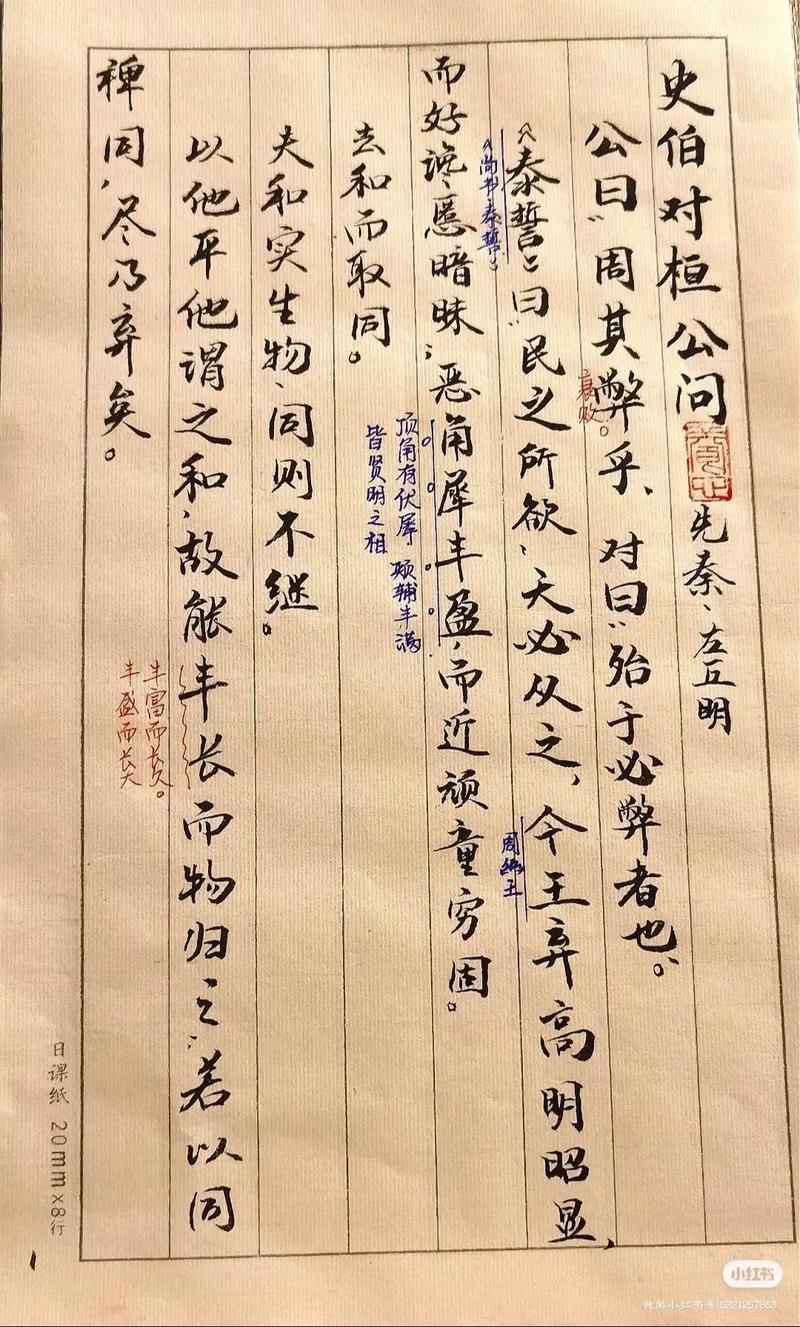 史伯对桓公问 先秦、左丘明
公曰“周其弊乎、对曰“殆于必弊者也。
衰败。
《泰誓》曰“民之所欲、天必从之，今王弃高明昭显，
《尚书·泰誓》
周幽王
而好谗慝暗昧；恶角犀丰盈，而近顽童穷固。
顶角有伏犀 颐辅丰满
皆贤明之相
去和而取同。
夫和实生物、同则不继。
以他平他谓之和，故能丰长而物归之；若以同
丰富而长久。
丰盛而长大
裨同，尽乃弃矣。
日课纸 20mm×8行
1
小红书
我的小红书号 5321257863